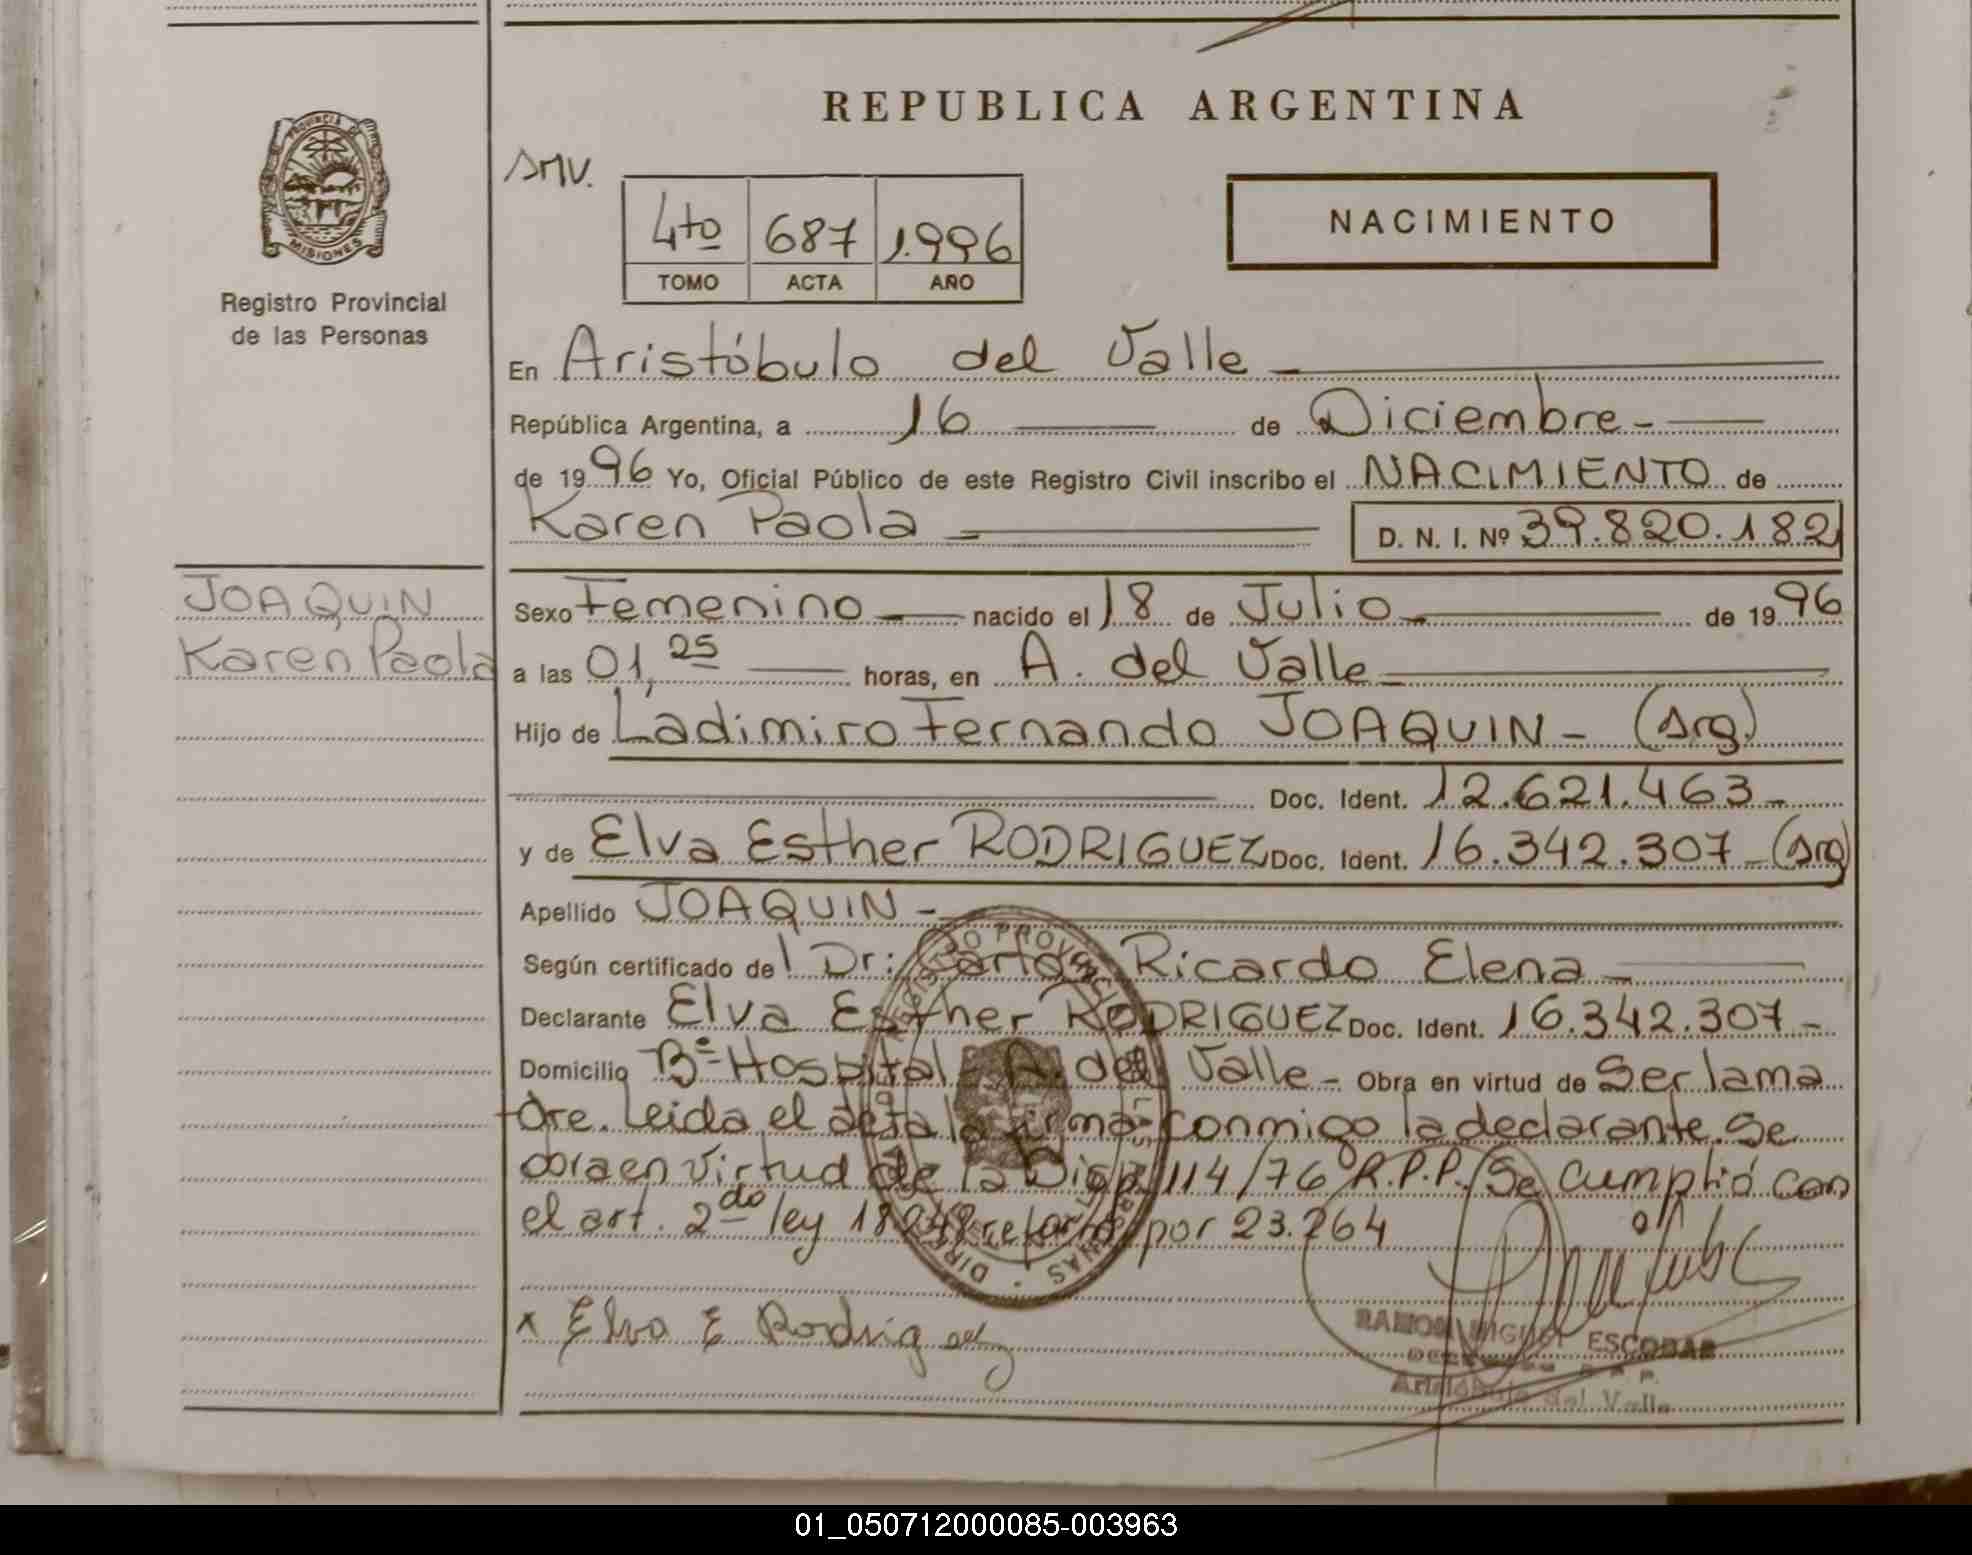 REPUBLICA ARGENTINA
PROVINCIA DE
MISIONES
Registro Provincial
de las Personas
4to 687 1.996
TOMO ACTA AÑO
NACIMIENTO
En Aristóbulo del Valle
República Argentina, a 16 de Diciembre
de 1996 Yo, Oficial Público de este Registro Civil inscribo el NACIMIENTO de
Karen Paola D. N. I. Nº 39.820.182
JOAQUIN
Karen Paola
Sexo Femenino nacido el 18 de Julio de 1996
a las 01,25 horas, en A. del Valle
Hijo de Ladimiro Fernando JOAQUIN - (Arg.)
Doc. Ident. 12.621.463
y de Elva Esther RODRIGUEZ Doc. Ident. 16.342.307 - (Arg)
Apellido JOAQUIN
Según certificado del Dr: Carlos Ricardo Elena
Declarante Elva Esther RODRIGUEZ Doc. Ident. 16.342.307
Domicilio Bº Hospital A. del Valle - Obra en virtud de Ser la ma
dre. Leida el acta la firma conmigo la declarante. Se
obra en virtud de la Disp. 114/76 R.P.P. Se cumplió con
el art. 2do ley 18.248 reform por 23.264
x Elva E Rodriguez
RAMON MIGUEL ESCOBAR
Aristóbulo del Valle
01_050712000085-003963